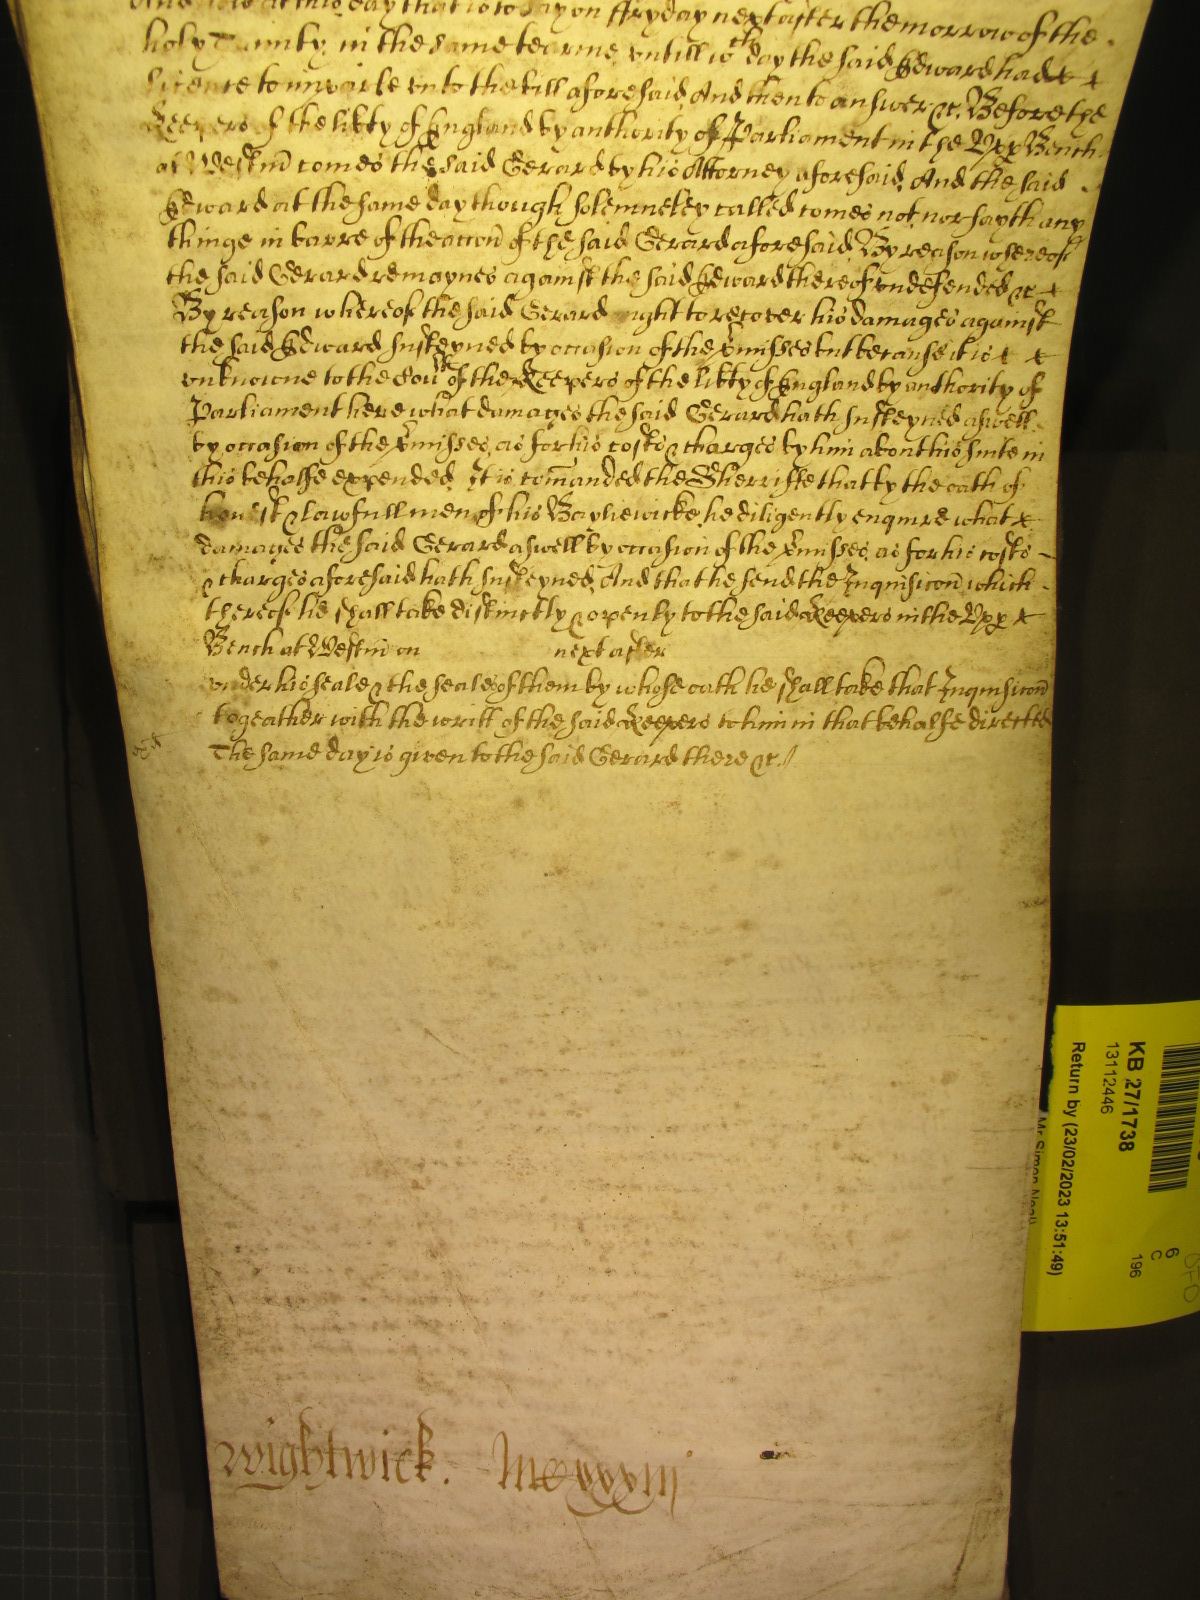 And now at this day that is to say on ffryday next after the morrow of the
holy Trinity in the same tearme untill wch day the said Edward had
licence to imparle unto the bill aforesaid And then to answer &c. Before the
Keepers of the libty of England by authority of Parliament in the Upp Bench
at Westm comes the said Gerard by his Attorney aforesaid And the said
Edward at the same day though solemneley called comes not nor sayth any
thinge in barre of the accon of the said Gerard aforesaid By reason whereof
the said Gerard remaynes against the said Edward thereof undefended &c
By reason whereof the said Gerard ought to recover his damages against
the said Edward susteyned by occasion of the pmisses but because it is
unknowne to the Court of the Keepers of the libty of England by authority of
Parliament here what damages the said Gerard hath susteyned aswell
by occasion of the pmisses as for his costs & charges by him about his suite in
this behalfe expended It is comanded the Sherriffe that by the oath of
honest & lawfull men of his Bayliewicke he diligently enquire what
damages the said Gerard aswell by occasion of the pmisses as for his costs
& charges aforesaid hath susteyned And that he send the Inquisicon which
thereof he shall take distinctly & openly to the said Keepers in the Upp
Bench at Westm on next after
under his seale & the seales of them by whose oath he shall take that Inquisicon
togeather with the writt of the said Keepers to him in that behalfe directed
The same day is given to the said Gerard there &c.
Wightwick.
KB 27/1738
13112446
Return by (23/02/2023 13:51:49)
196
6
C